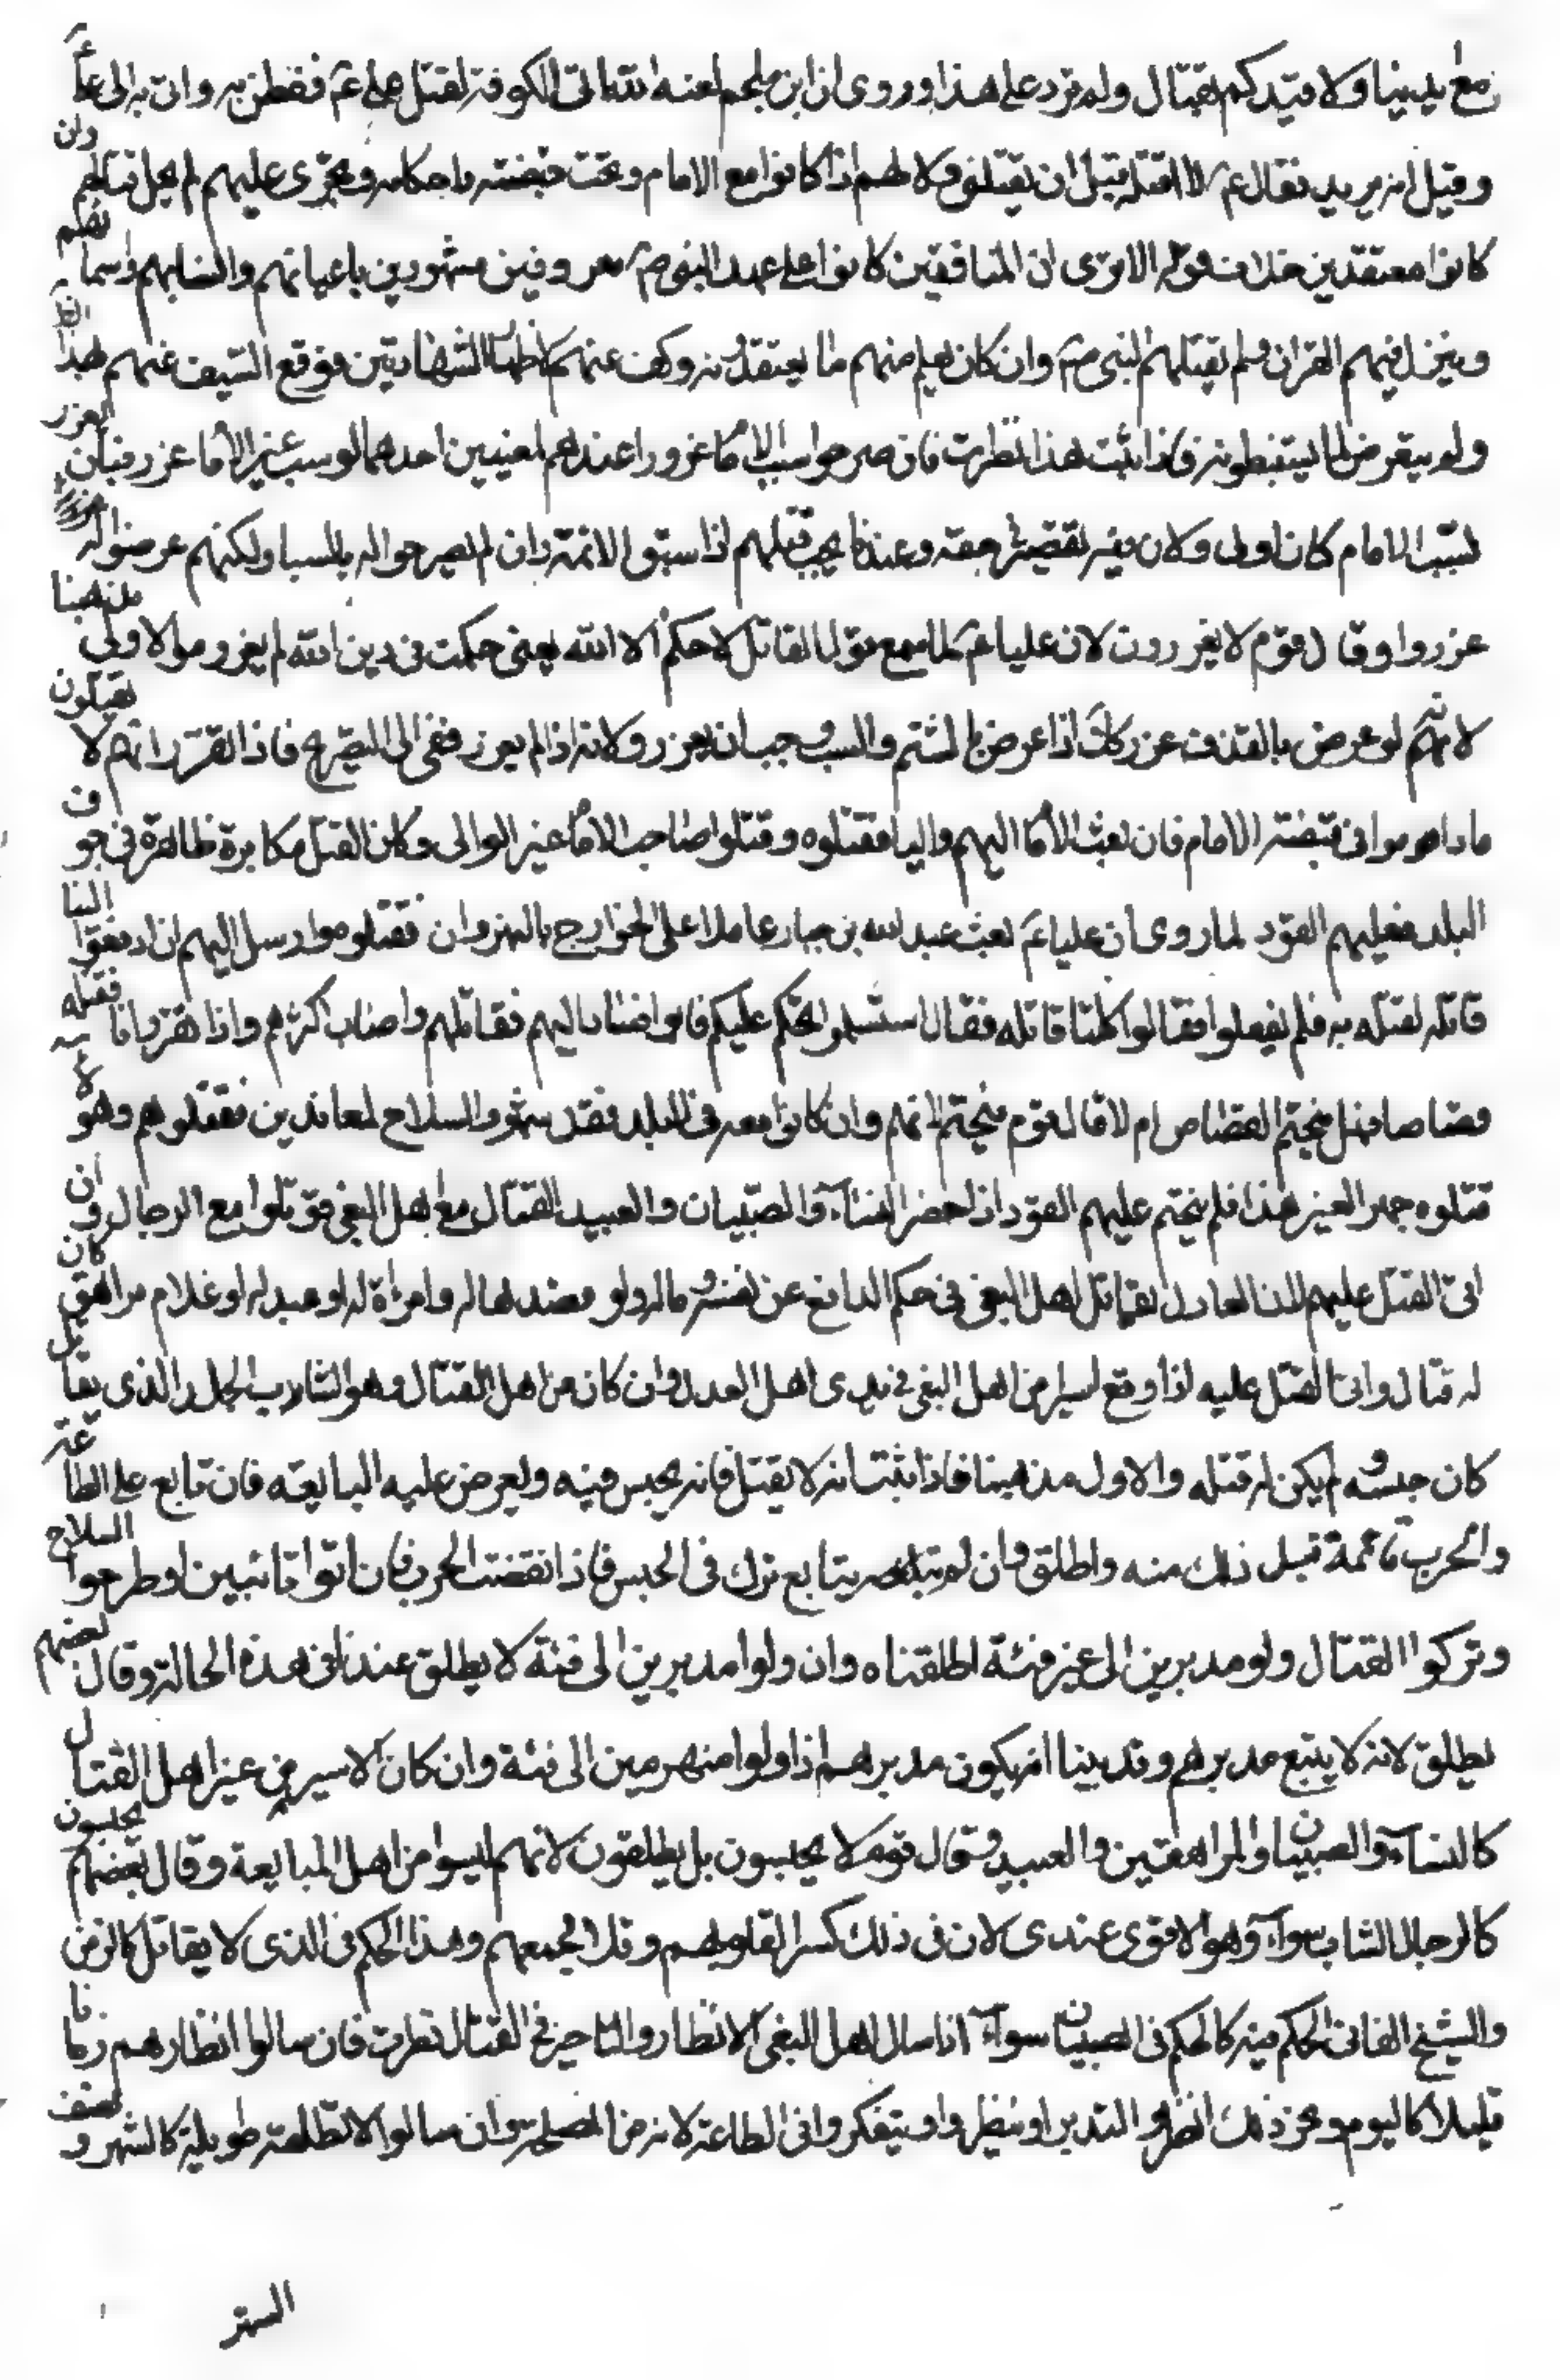 مع يدينا ولا نبتدئكم بقتال ولم نزد على هذا وروى ان ابن ملجم لعنه الله اتى الكوفة لقتل على عم ففطن به واتى به الى على عم
وقيل انه يريد فقال عم لا اقتله قبل ان يقتلنى ولا لهم اذا كانوا مع الامام وتحت قبضته واحكامه ويجرى عليهم لم يحل قتالهم وان
كانوا معتقدين خلاف قوله الا ترى ان المنافقين كانوا على عهد النبى ص معروفين مشهورين باعيانهم وانسابهم واسمائهم
وينزل فيهم القران ولم يقتلهم النبى ص وان كان يعلم منهم ما يعتقدونه وكف عنهم لاظهار الشهادتين فوقع السيف عنهم بهذا القدر
ولم يتعرض لما يستبطنونه فاذا ثبت هذا نظرت فان صرحوا بسب الامام عزروا عندهم لمعنيين احدهما لو سب غير الاماعزر فبان
بسب الامام كان اولى ولان فيه تقصيرا فى حقه وعندنا يجب قتلهم اذا سبوا الائمة وان لم يصرحوا له بالسب ولكنهم عرضوا له
عزروا وقال قوم لا يعزرون لان عليا عم لما سمع قول القائل لا حكم الا الله يعنى حكمت فى دين الله لم يعزره والاولى مذهبنا
لانهم لو عرض بالقذف عزر كذلك اذا عرض بالشتم والسب وجب ان يعزر ولانه اذا لم يعزر ففى الى التصريح فاذا تقرر انهم لا يقتلون
ما داموا فى قبضة الامام فان بعث الاماليهم واليا فقتلوه وقتلوا صاحب الاماغير الوالى وكان القتل مكابرة ظاهرة فى جوف
البلد فعليهم القود لما روى ان عليا عم بعث عبد الله بن خباب عاملا على الخوارج بالنهروان فقتلوه وارسل اليهم ان ادفعوا الينا
قاتله لنقتله به فلم يفعلوا فقالوا كلنا قاتله فقال استسلموا نحكم عليكم فابوا فسار اليهم فقاتلهم واصاب اكثرهم واذا تقرر انا نقتله
قصاصا فهل يتحتم القصاص ام لا قال قوم يتحتم لانهم وان كانوا معه فى البلد فقد شهروا السلاح معاندين فقتلوهم وهو
قتلوه جهرا لغير هذا فلم يتحتم عليهم القود اذا حضر النساء والصبيان والعبيد القتال مع اهل البغى قوتلوا مع الرجال وان
اتى القتل عليهم لان العادل يقاتل اهل البغى فى حكم الدافع عن نفسه وماله ولو قصد ماله وامراة له او عبد له او غلام مراهق كان
له قتال وان اتى القتل عليه اذا وقع اسير من اهل البغى فى يدى اهل العدل وان كان من اهل القتال وهو الشاب الجلد الذى يقاتل
كان حبسه ولم يكن له قتله والاول مذهبنا فاذا ثبت انه لا يقتل فانه يحبس فيه ويعرض عليه المبايعة فان تابع على الطاعة
والحرب قائمة قبل ذلك منه واطلق وان لم يتابع ترك فى الحبس فاذا انقضت الحرب فان اتوا تائبين او طرحوا السلاح
وتركوا القتال ولوا مدبرين الى غير فئة اطلقناه وان ولوا مدبرين الى فئة لا يطلق عندنا فى هذه الحالة وقال بعضهم
يطلق لانه لا يتبع مدبرهم وقد بينا انه يكون مدبرهم اذا ولوا منهزمين الى فئة وان كان الاسير من غير اهل القتال
كالنساء والصبيان والمراهقين والعبيد وقال قوم لا يحبسون بل يطلقون لانهم ليسوا من اهل المبايعة وقال بعضهم يحبسون
كالرجال الشاب سواء وهو الاقوى عندى لان فى ذلك كسرا لقلوبهم وفلا لجمعهم وهذا الحكم فى الذى لا يقاتل كالزمن
والشيخ الفانى الحكم فيه كالحكم فى الصبيان سواء اذا سال اهل البغى الانظار والتاخير فى القتال نظرت فان سالوا انظارهم زمانا
قليلا كاليوم ونحو ذلك انظروا لتدبر او نظر او يتفكروا فى الطاعة لانه من المصلحة وان سالوا الانظار مدة طويلة كالشهر ونصف
الشهر